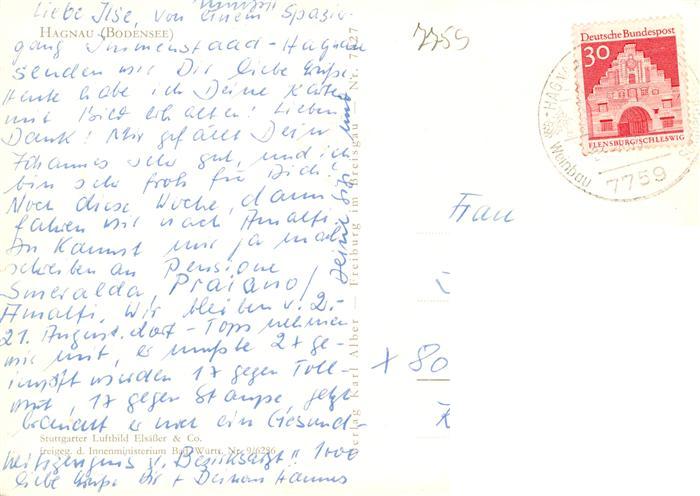 Liebe Ilse, von einem Spazier-
HAGNAU (BODENSEE)
gang Immenstaad-Hagnau
senden wir Dir liebe Grüße.
Heute habe ich Deine Karte
mit Bild erhalten! Lieben
Dank! Mir gefällt Dein
Johannes sehr gut, und ich
bin sehr froh für Dich!
Noch diese Woche, dann
fahren wir nach Amalfi.
Du kannst mir ja mal
schreiben an Pensione
Smeralda, Praiano/
Amalfi. Wir bleiben v. 2.-
21. August dort - Topsi nehmen
wir mit, er mußte 2x ge-
impft werden 1x gegen Toll-
wut, 1x gegen Staupe, jetzt
braucht er noch ein Gesund-
Stuttgarter Luftbild Elsäßer & Co.
freigeg. d. Innenministerium Bad. Württ. Nr. 9/6286
heitszeugnis v. "Bezirksarzt" 1000
liebe Grüße Dir + Deinem Hannes
Deine
Verlag Karl Alber — Freiburg im Breisgau — Nr. 7
27
7759
Deutsche Bundespost
30
FLENSBURG/SCHLESWIG
HAGN
Weinbau
7759
Frau
x 80